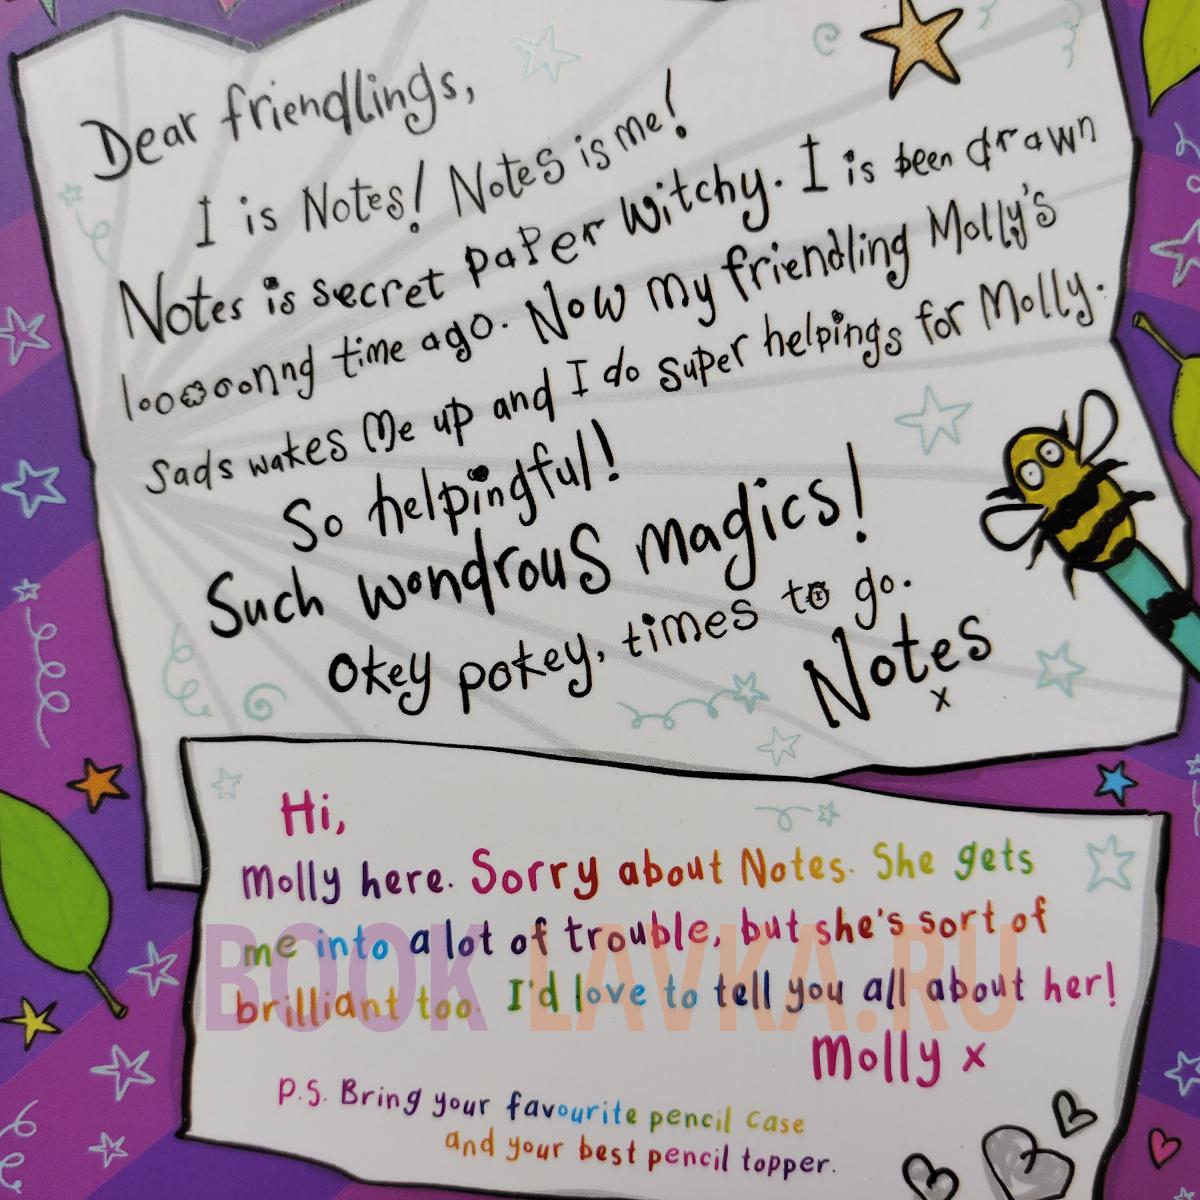 Dear friendlings,
I is Notes! Notes is me!
Notes is secret paper witchy. I is been drawn
looooonng time ago. Now my friendling Molly's
sads wakes me up and I do super helpings for Molly.
So helpingful!
Such wondrous magics!
Okey pokey, times to go.
Notes
x
Hi,
Molly here. Sorry about Notes. She gets
me into a lot of trouble, but she's sort of
brilliant too. I'd love to tell you all about her!
Molly x
P.S. Bring your favourite pencil case
and your best pencil topper.
BOOK LAVKA.RU